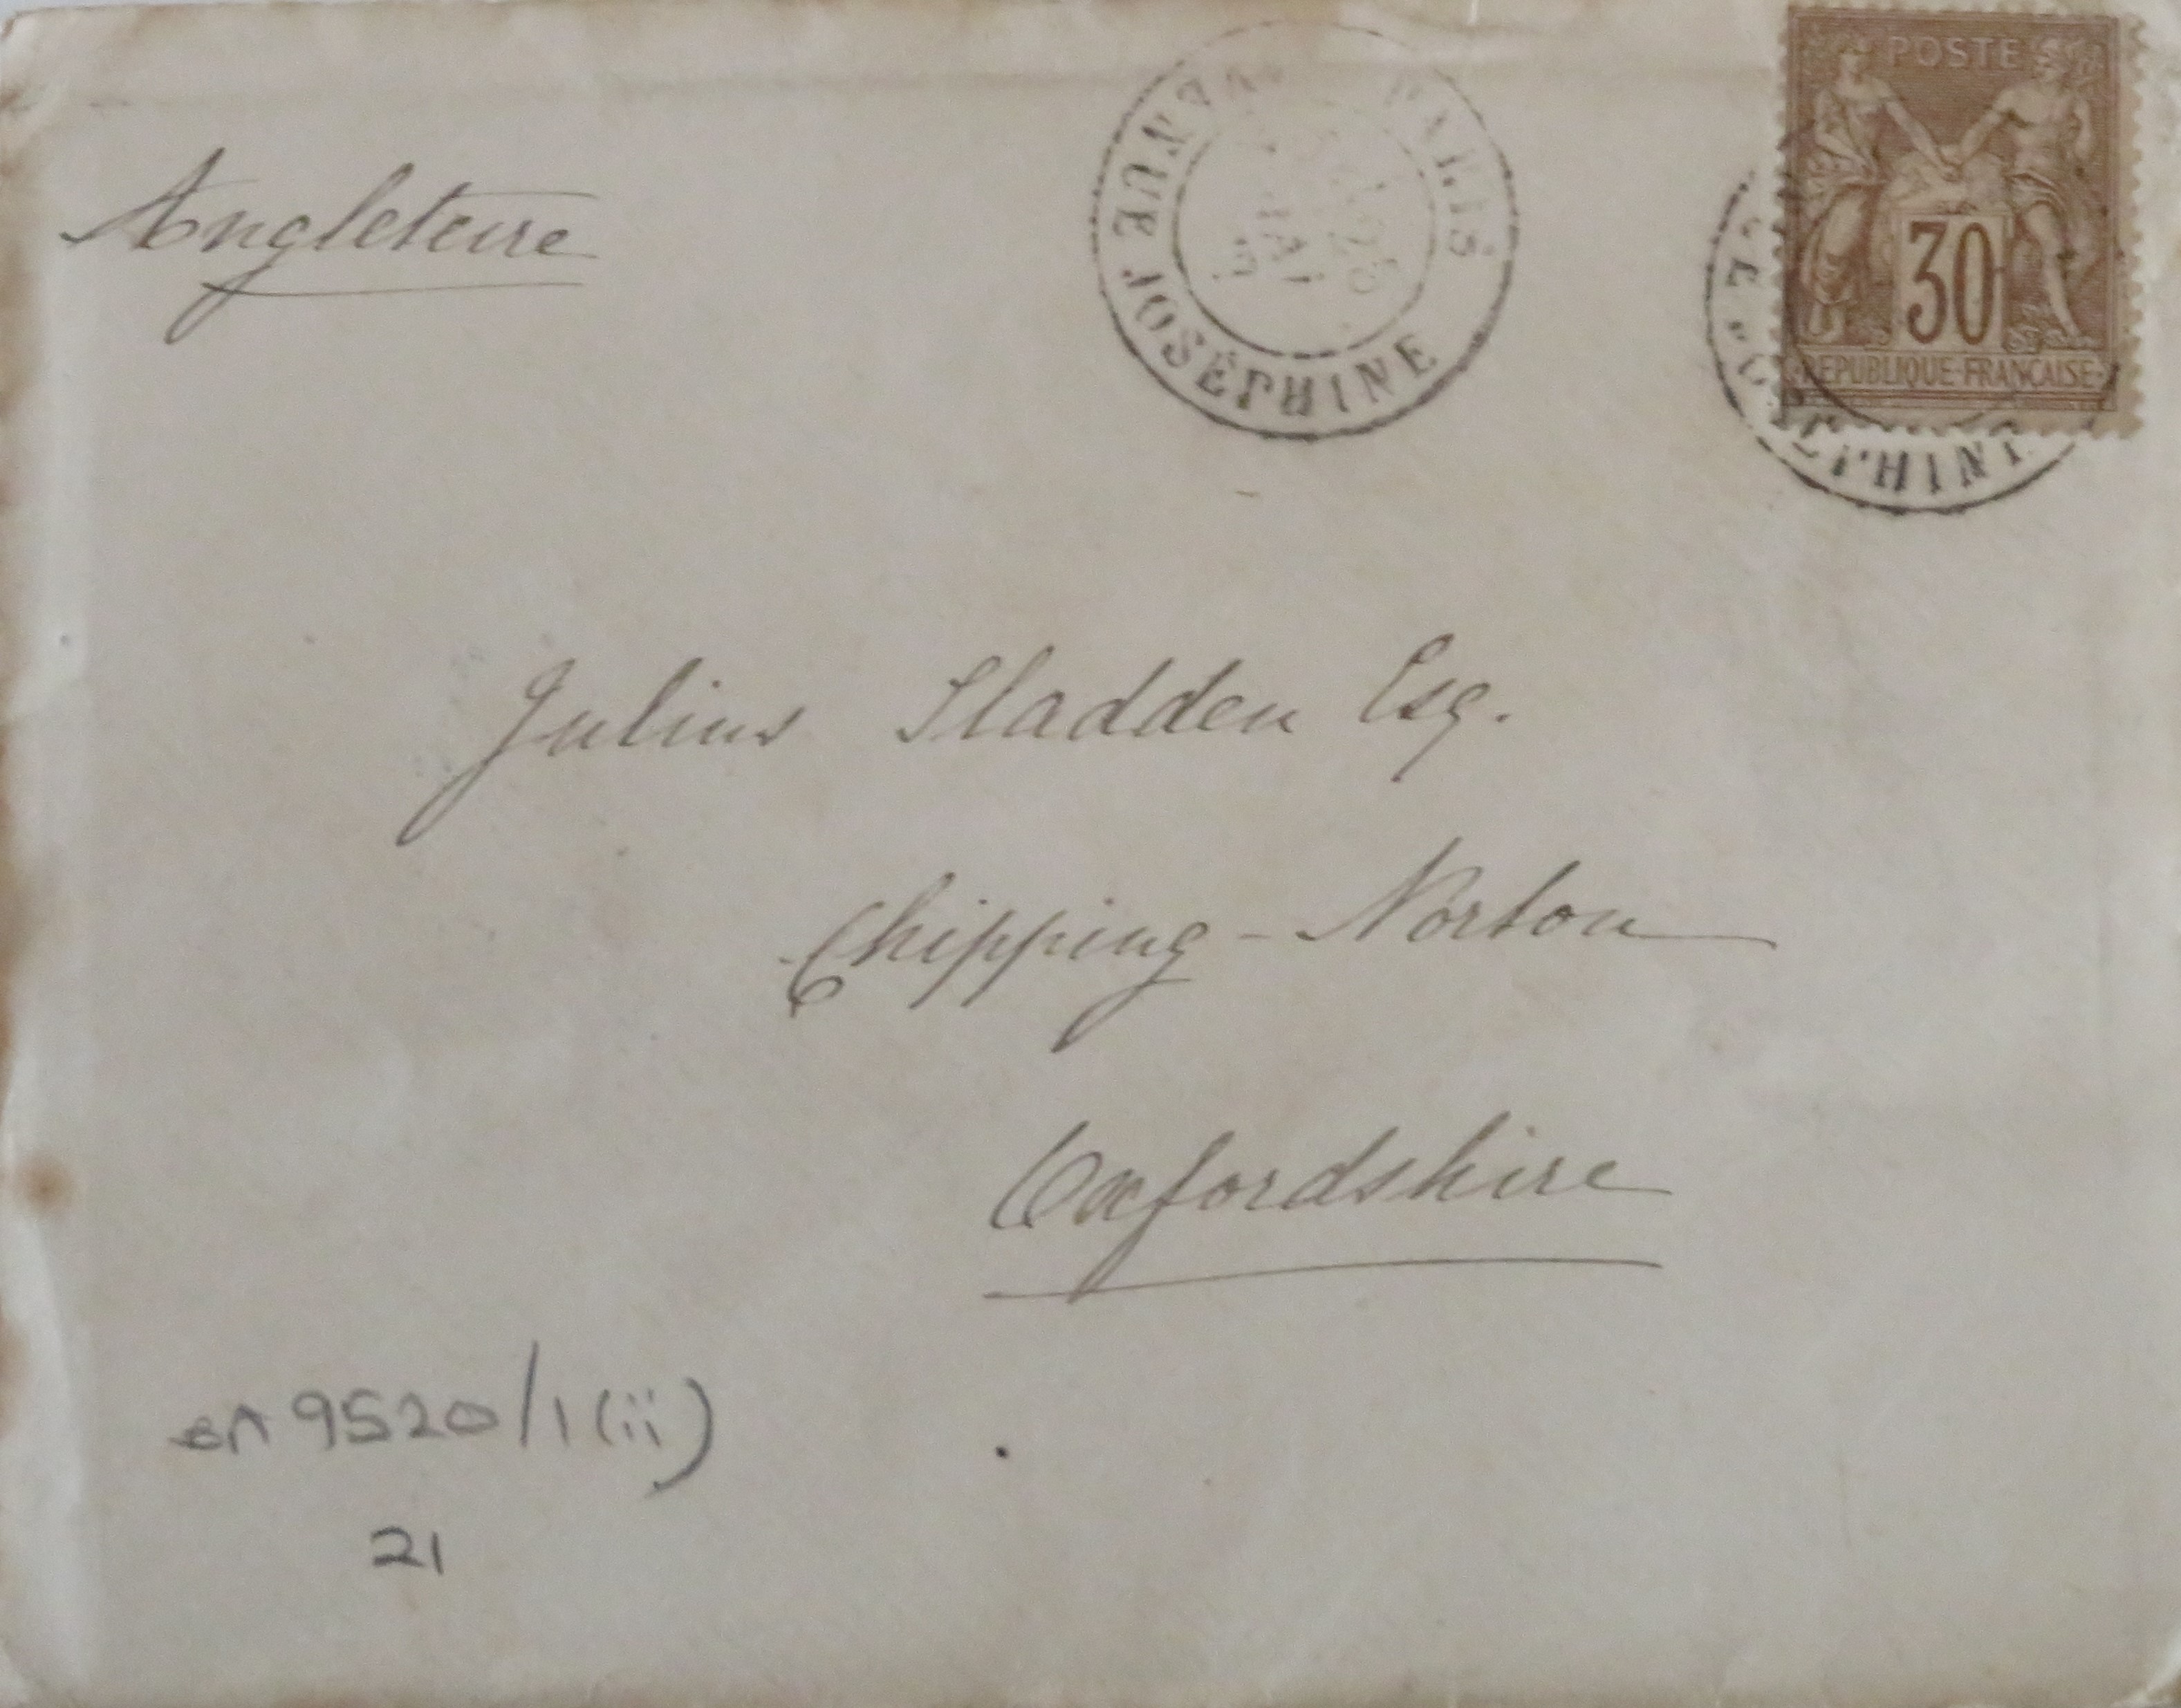 Angleterre
PARIS
JOSÉPHINE
POSTE
30
REPUBLIQUE-FRANÇAISE
Julius Sladden Esq.
Chipping-Norton
Oxfordshire
9520/1(ii)
21